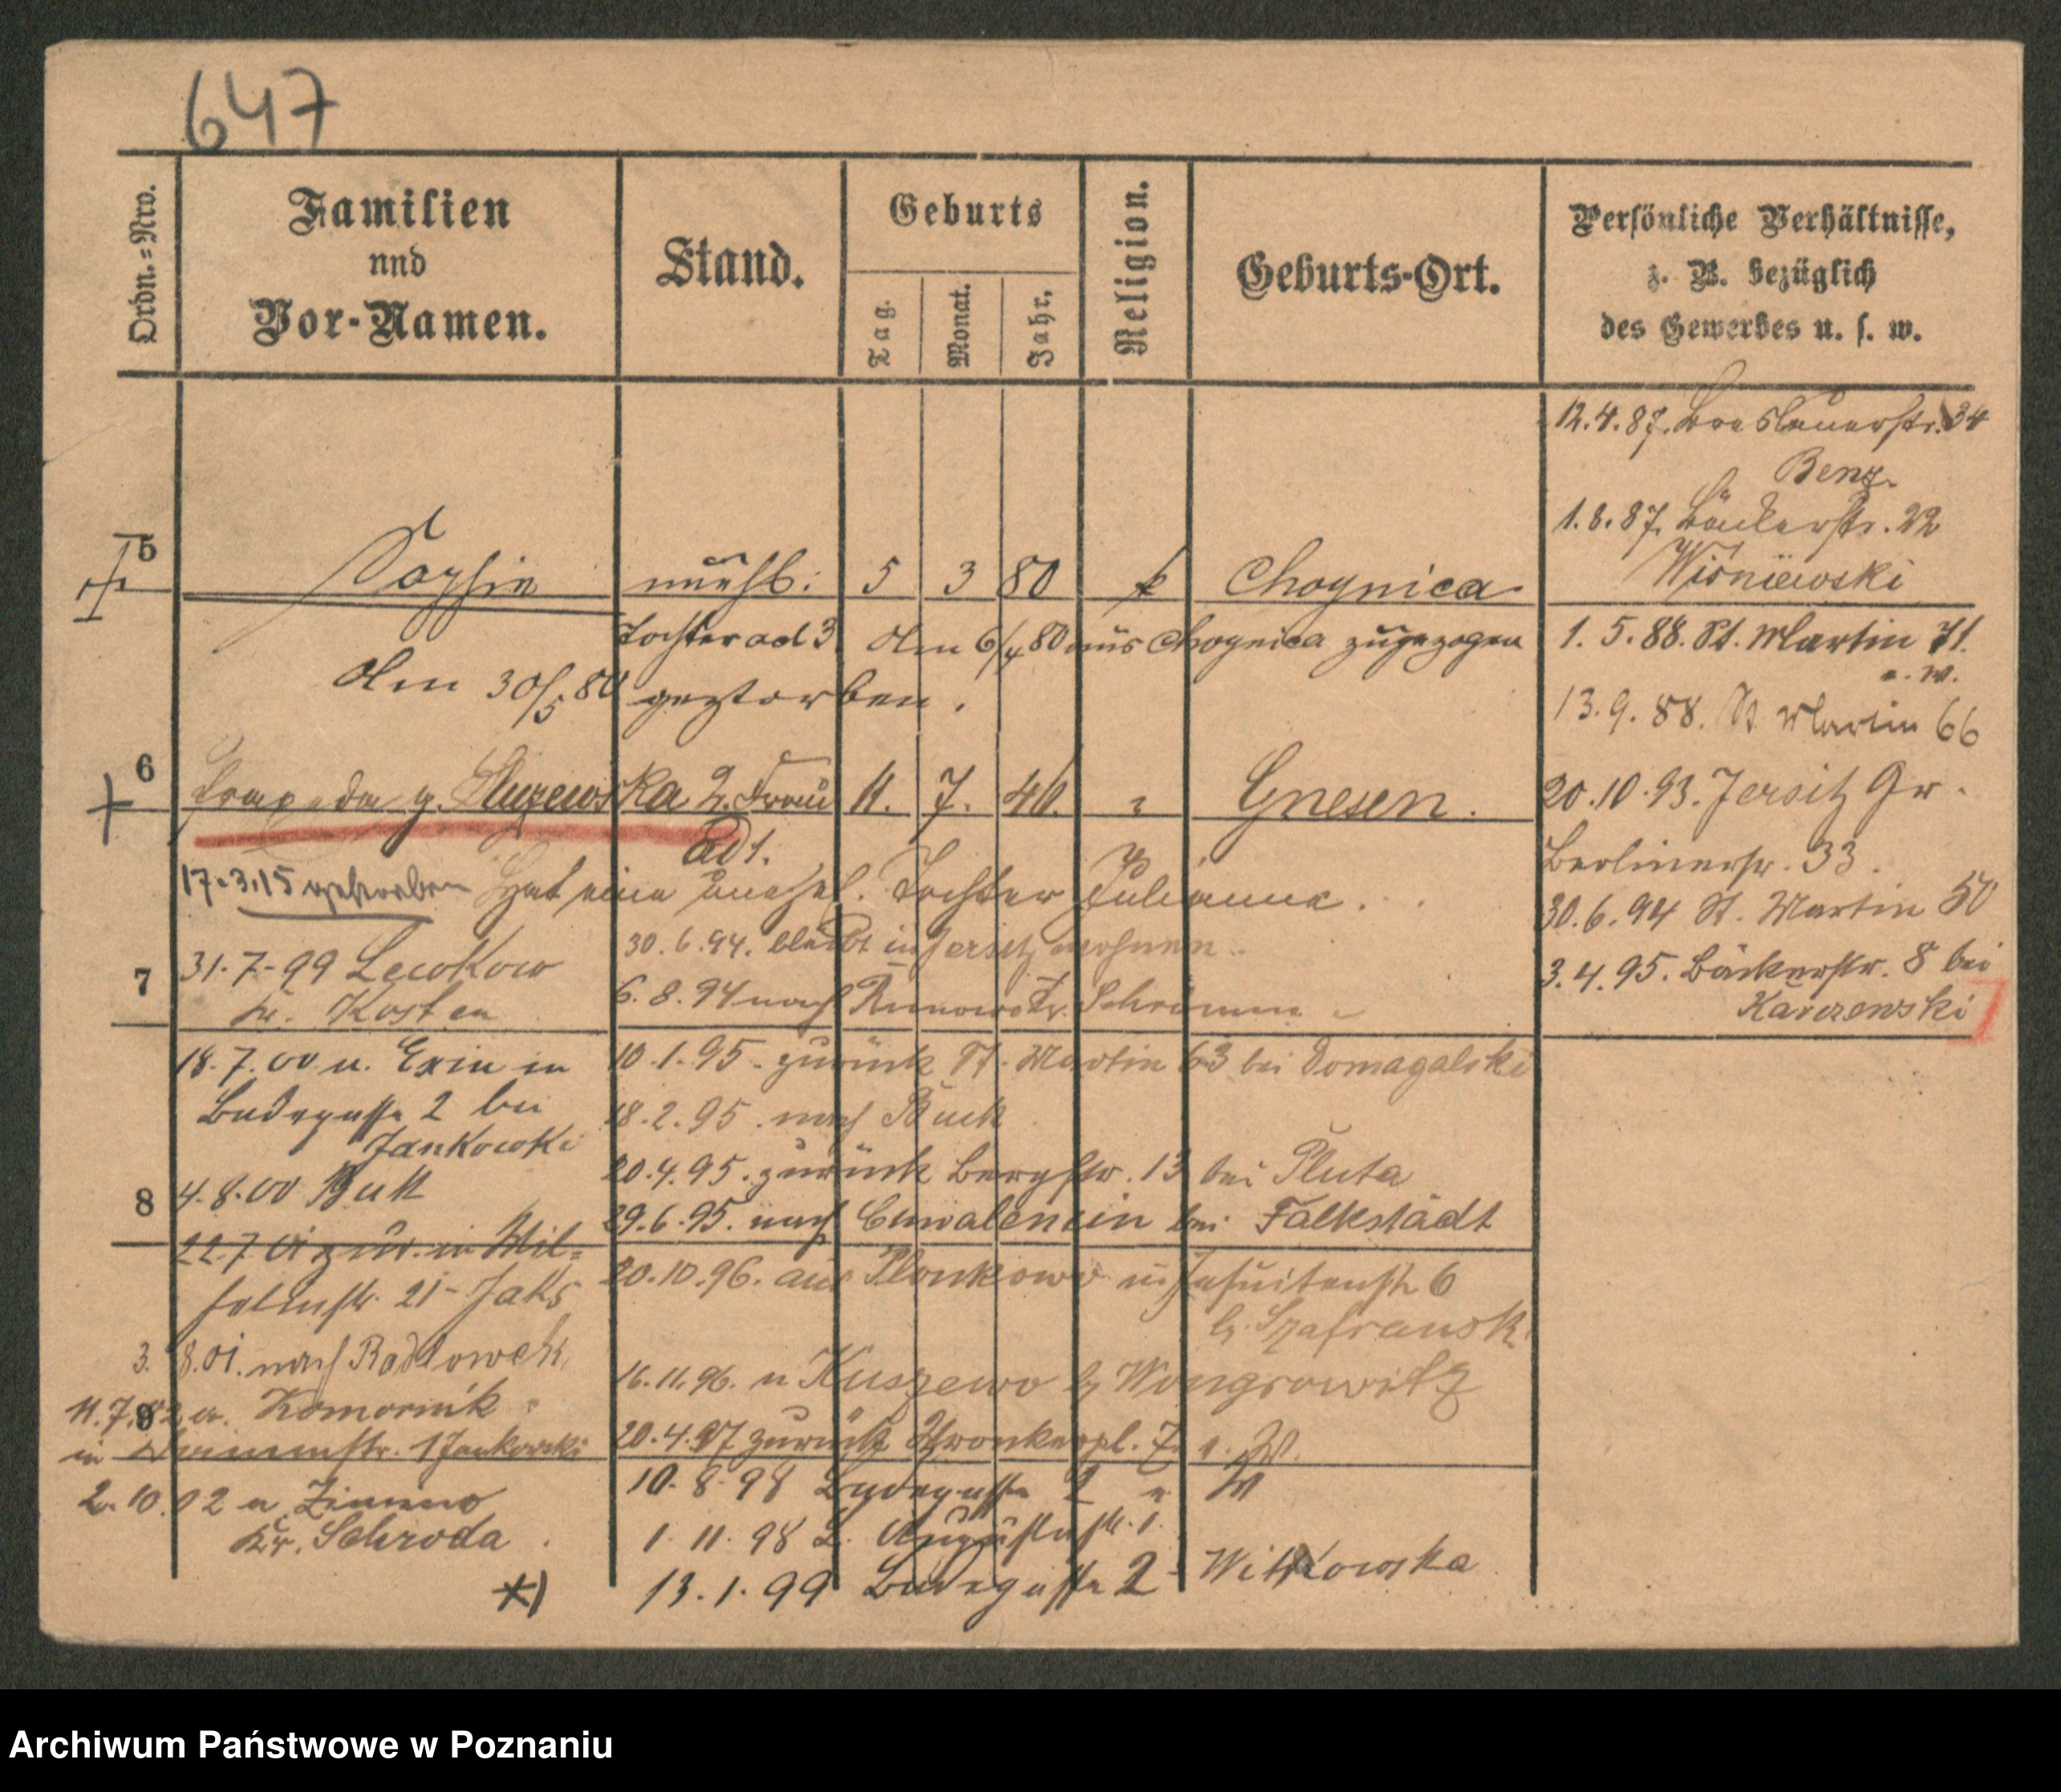 647
Ordn.=Nro.
Familien
und
Vor-Namen.
Stand.
Geburts
Tag.
Monat.
Jahr.
Religion.
Geburts-Ort.
Persönliche Verhältnisse,
z. B. bezüglich
des Gewerbes u. s. w.
12.4.87. Breslauerstr. 34
Benz.
1.8.87. Bäckerstr. 22
Wisniewski
5 Sophie unehl: 5 3 80 k Choynica
Tochter ad 3 Am 6/4 80 aus Choynica zugezogen
Am 30/5 80 gestorben.
1. 5. 88. St. Martin 71.
13. 9. 88. St. Martin 66
6 g. Sluzewska 2. Frau 11. 7. Gnesen.
ad 1.
20.10.93. Jersitz Gr.
Berlinerstr. 33.
17.3.15 gestorben Hat eine unehel. Tochter Julianna.
30.6.94 St. Martin 50
30.6.94. bleibt in Jersitz wohnen.
3.4.95. Bäckerstr. 8 bei
Karczewski
7 31.7.99 Lewkow
Kr. Kosten
6.8.94 nach Schrimm
18.7.00 u. Exin in
Badegasse 2 bei
Jankowski
10.1.95. zurück St. Martin 63 bei Domagalski
18.2.95. nach Buck
20.4.95. zurück Bergstr. 13 bei Pluta
8 4.8.00 Buk
29.6.95. nach bei Falkstädt
22.7.01 zur. in Wil=
helmstr. 21 - Jaks
20.10.96. aus Plonkowo in Jesuitenstr 6
b. Szafranski
3. 8.01. nach
Komornik
16.11.96. n Kuszewo b Wongrowitz
9 11.7.02 a.
in 1 Jankowski
20.4.97 zurück Wronkerpl. 7. W.
2.10.02 n Zimino
Kr. Schroda.
10.8.98 Badegasse 2 W
1.11.98 Augustastr. 1.
13.1.99 Badegasse 2 - Witkowska
*)
Archiwum Państwowe w Poznaniu